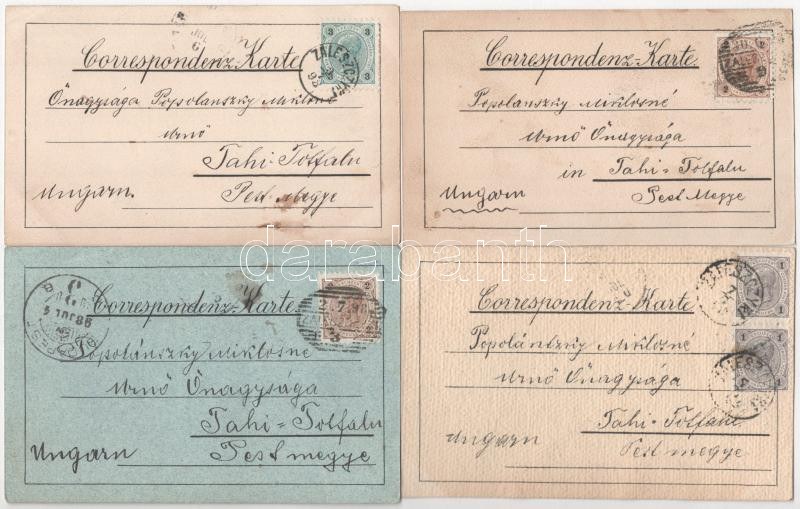 Correspondenz-Karte
ZALESZCZYKI
3 3
Önagysága Popolanszky Miklósné
Urnő
Tahi-Tótfalu
Ungarn.
Pest-Megye
Correspondenz-Karte
2 2
Popolanszky Miklósné
Urnő Önagysága
in Tahi=Tótfalu
Ungarn
Pest Megye
Correspondenz-Karte
2 2
Popolánszky Miklósné
Urnő Önagysága
Tahi=Tótfalu
Ungarn
Pest megye
Correspondenz-Karte
ZALESZCZYKI
1 1
1 1
Popolánszky Miklósné
Urnő Önagysága
Tahi-Tótfalu
Ungarn
Pest megye
darabanth